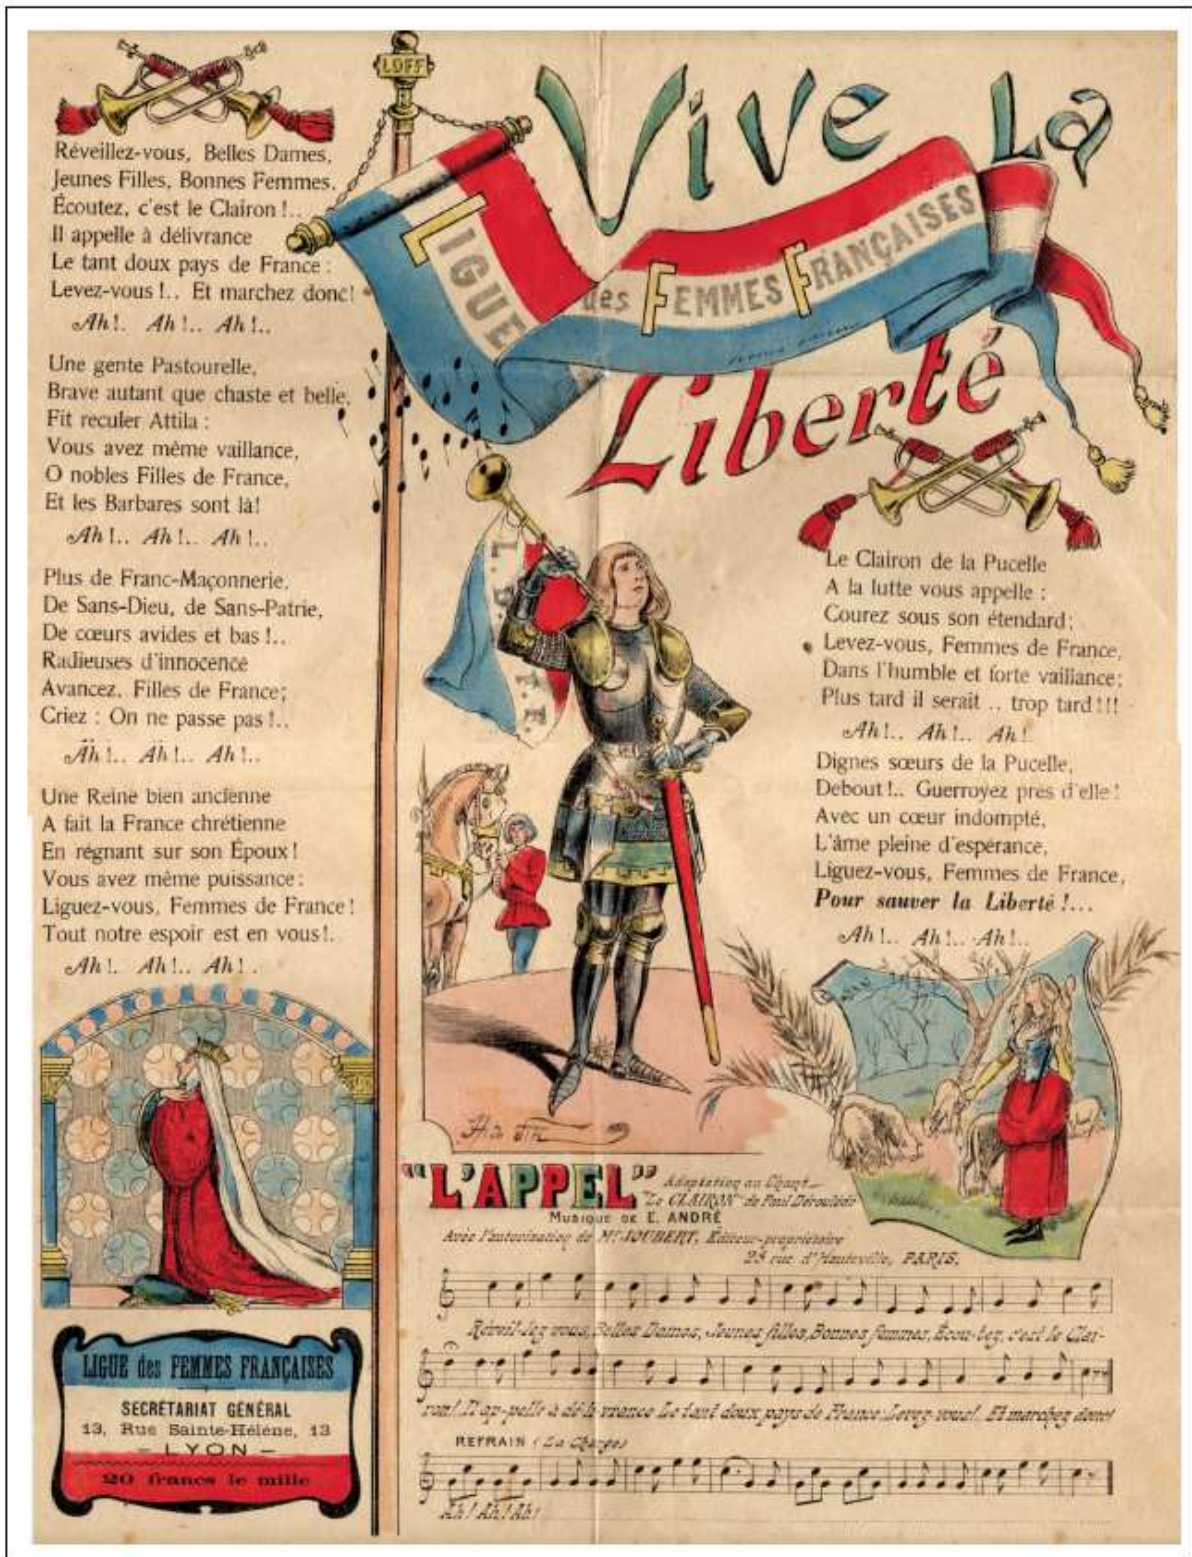 LDFF
Vive La
LIGUE des FEMMES FRANÇAISES
Liberté
Réveillez-vous, Belles Dames,
Jeunes Filles, Bonnes Femmes,
Écoutez, c'est le Clairon !..
Il appelle à délivrance
Le tant doux pays de France :
Levez-vous !.. Et marchez donc!
Ah!. Ah!.. Ah!..
Une gente Pastourelle,
Brave autant que chaste et belle,
Fit reculer Attila :
Vous avez même vaillance,
O nobles Filles de France,
Et les Barbares sont là!
Ah!.. Ah!.. Ah!..
Plus de Franc-Maçonnerie,
De Sans-Dieu, de Sans-Patrie,
De cœurs avides et bas !..
Radieuses d'innocence
Avancez, Filles de France;
Criez : On ne passe pas !..
Ah!.. Ah!.. Ah!..
Une Reine bien ancienne
A fait la France chrétienne
En régnant sur son Époux!
Vous avez même puissance:
Liguez-vous, Femmes de France!
Tout notre espoir est en vous!.
Ah!. Ah!.. Ah! .
L. D. F. F.
Le Clairon de la Pucelle
A la lutte vous appelle :
Courez sous son étendard;
Levez-vous, Femmes de France,
Dans l'humble et forte vaillance;
Plus tard il serait .. trop tard!!!
Ah!.. Ah!.. Ah!
Dignes sœurs de la Pucelle,
Debout!.. Guerroyez près d'elle!
Avec un cœur indompté,
L'âme pleine d'espérance,
Liguez-vous, Femmes de France,
Pour sauver la Liberté !...
Ah!.. Ah!.. Ah!..
"L'APPEL"
Adaptation au Chant
"Le CLAIRON" de Paul Déroulède
MUSIQUE DE E. ANDRÉ
Avec l'autorisation de Mr JOUBERT, Éditeur-propriétaire
rue d'Hauteville, PARIS.
Réveil-lez vous, Belles Dames, Jeunes filles, Bonnes femmes, Écou-tez, c'est le Clai-
ron! Il ap-pelle à dé-li vrance Le tant doux pays de France. Levez-vous!. Et marchez donc!
REFRAIN (La Charge)
Ah! Ah! Ah!
LIGUE des FEMMES FRANÇAISES
SECRÉTARIAT GÉNÉRAL
13, Rue Sainte-Hélène, 13
– LYON –
20 francs le mille